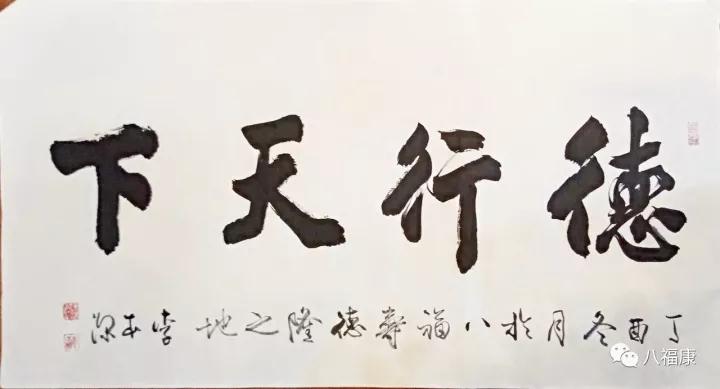 德行天下
丁酉冬月於八福寿德隆之地 李本深
八福康